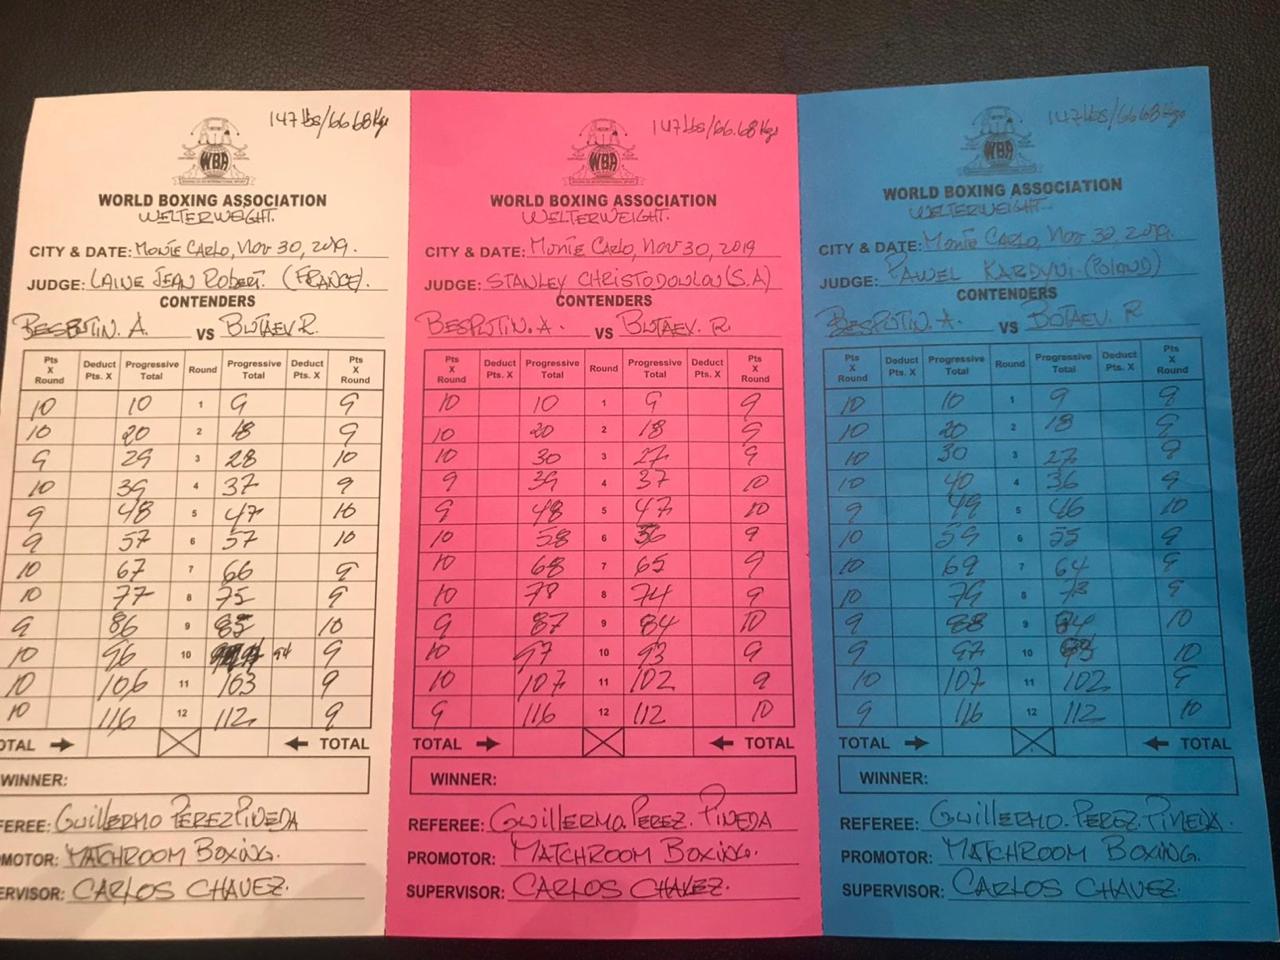 147 lbs/66.68 Kgs
WBA
WORLD BOXING ASSOCIATION
WELTERWEIGHT.
CITY & DATE: Monte Carlo, Nov 30, 2019.
JUDGE: LAINE JEAN Robert. (FRANCE).
CONTENDERS
BESPUTIN. A. VS BUTAEV R.
Pts X Round Deduct Pts. X Progressive Total Round Progressive Total Deduct Pts. X Pts X Round
10 10 1 9 9
10 20 2 18 9
9 29 3 28 10
10 39 4 37 9
9 48 5 47 10
9 57 6 57 10
10 67 7 66 9
10 77 8 75 9
9 86 9 85 10
10 96 10 94 9
10 106 11 103 9
10 116 12 112 9
OTAL TOTAL
WINNER:
FEREE: Guillermo PEREZ PINEDA
MOTOR: MATCHROOM BOXING.
ERVISOR: CARLOS CHAVEZ.
147 lbs/66.68 Kgs
WBA
WORLD BOXING ASSOCIATION
WELTERWEIGHT.
CITY & DATE: Monte Carlo, Nov 30, 2019
JUDGE: STANLEY CHRISTODOULOU (S.A)
CONTENDERS
BESPUTIN. A. VS BUTAEV. R.
Pts X Round Deduct Pts. X Progressive Total Round Progressive Total Deduct Pts. X Pts X Round
10 10 1 9 9
10 20 2 18 9
10 30 3 27 9
9 39 4 37 10
9 48 5 47 10
10 58 6 56 9
10 68 7 65 9
10 78 8 74 9
9 87 9 84 10
10 97 10 93 9
10 107 11 102 9
9 116 12 112 10
TOTAL TOTAL
WINNER:
REFEREE: GUILLERMO. PEREZ. PINEDA
PROMOTOR: MATCHROOM BOXING.
SUPERVISOR: CARLOS CHAVEZ.
147 lbs/66.68 Kgs
WBA
WORLD BOXING ASSOCIATION
WELTERWEIGHT.
CITY & DATE: Monte Carlo, Nov 30, 2019.
JUDGE: PAWEL KARDYNI. (POLAND)
CONTENDERS
BESPUTIN. A. VS BUTAEV. R
Pts X Round Deduct Pts. X Progressive Total Round Progressive Total Deduct Pts. X Pts X Round
10 10 1 9 9
10 20 2 18 9
10 30 3 27 9
10 40 4 36 9
9 49 5 46 10
10 59 6 55 9
10 69 7 64 9
10 79 8 73 9
9 88 9 84 10
9 97 10 10
10 107 11 102 9
9 116 12 112 10
TOTAL TOTAL
WINNER:
REFEREE: GUILLERMO. PEREZ. PINEDA.
PROMOTOR: MATCHROOM BOXING.
SUPERVISOR: CARLOS CHAVEZ.